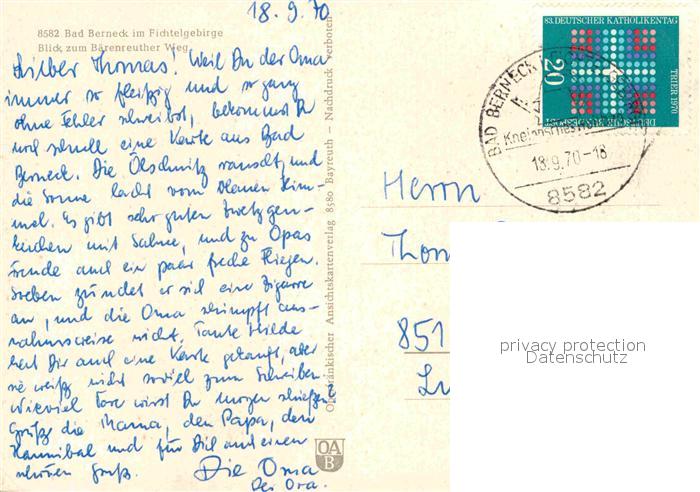 18.9.70
8582 Bad Berneck im Fichtelgebirge
Blick zum Bärenreuther Weg
Lieber Thomas! Weil Du der Oma
immer so fleißig und so ganz
ohne Fehler schreibst, bekommst Du
noch schnell eine Karte aus Bad
Berneck. Die Ölschnitz rauscht, und
die Sonne lacht vom blauen Him-
mel. Es gibt sehr guten Zwetzgen-
kuchen mit Sahne, und zu Opas
Freude auch ein paar freche Fliegen.
Soeben zündet er sich eine Zigarre
an, und die Oma schimpft aus-
nahmsweise nicht. Tante Hilde
hat Dir auch eine Karte gekauft, aber
sie weiß nicht soviel zum Schreiben.
Wieviel Tore wirst Du morgen schießen?
Grüße die Mama, den Papa, den
Hannibal und für Dich auch einen
schönen Gruß. Die Oma
Der Opa.
Oberfränkischer Ansichtskartenverlag 8580 Bayreuth — Nachdruck verboten
OA
B
83. DEUTSCHER KATHOLIKENTAG
TRIER 1970
20
DEUTSCHE BUNDESPOST
BAD BERNECK
18.9.70-18
8582
Herrn
Thom
851
privacy protection
Datenschutz